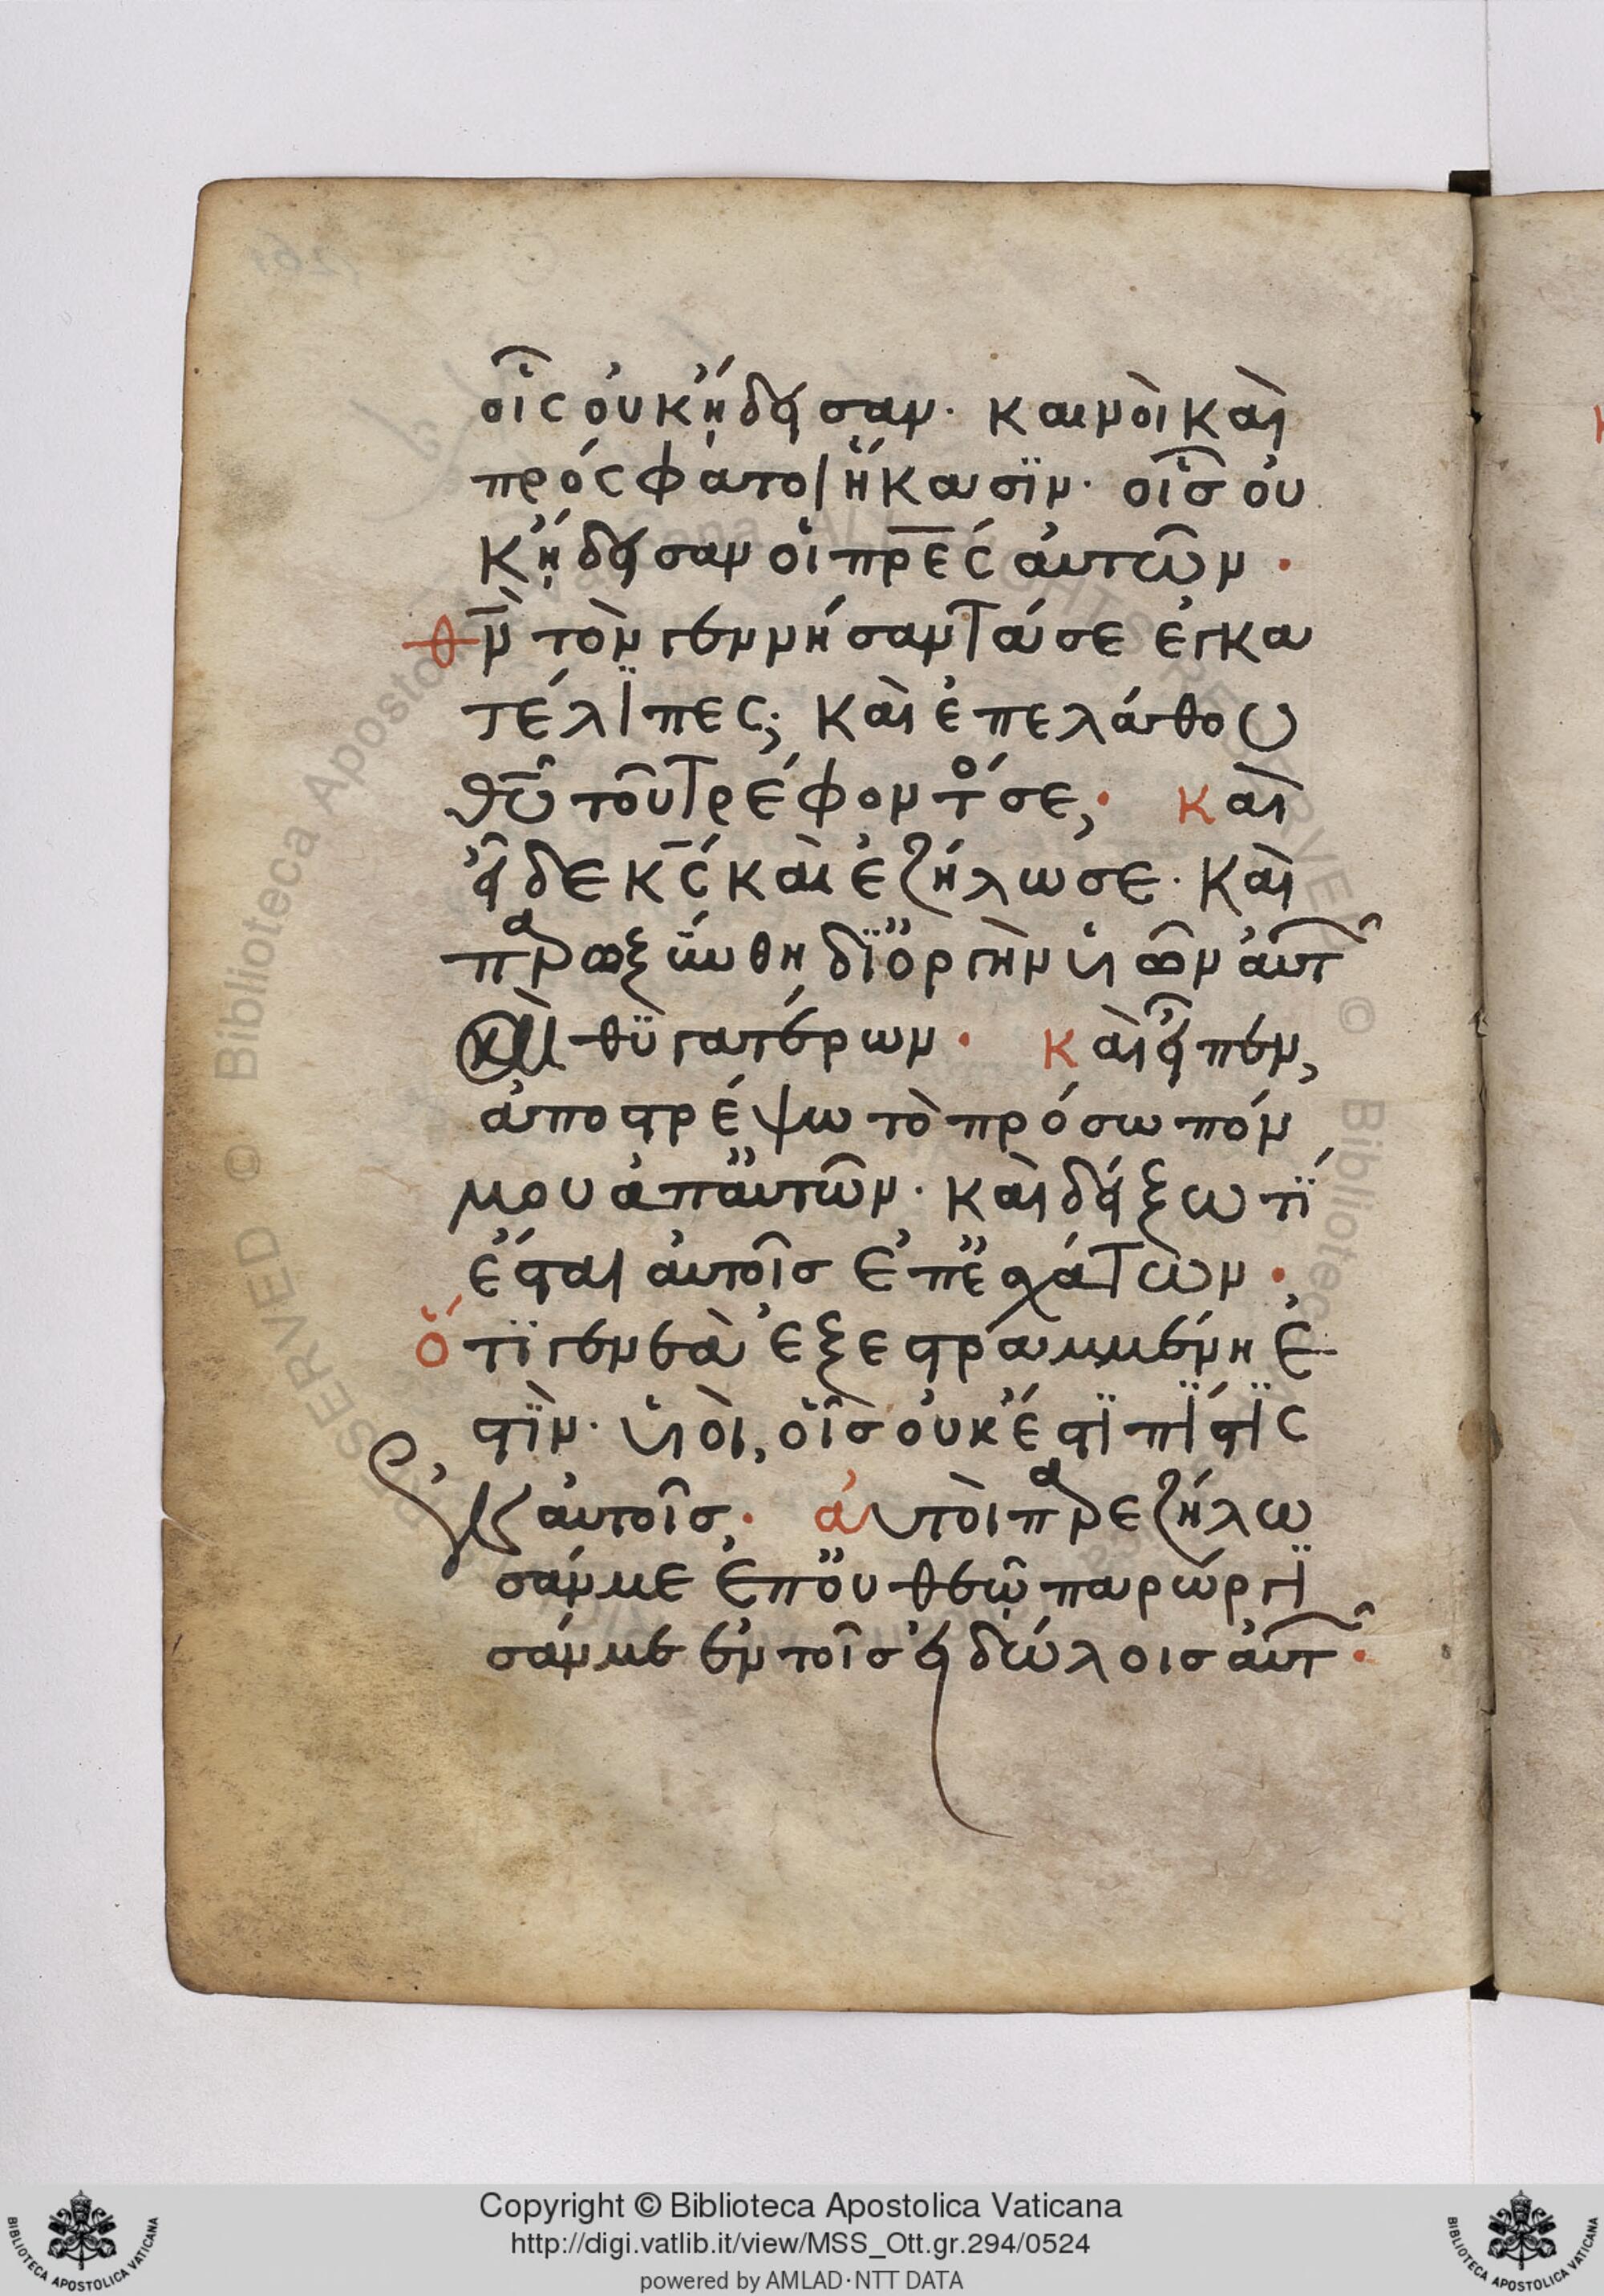 οἷς οὐκ ᾔδεισαν· καινοὶ καὶ
πρόσφατοι ἥκασϊν· οἷσ οὐ
κ ᾔδεισαν οἱ πρ̅ε̅ς αὐτῶν·
θ̅ν̅ τὸν γεννήσαντά σε ἐγκα
τέλϊπες; καὶ ἐπελάθου
θ̅υ̅ τοῦ τρέφοντός σε; καὶ
εἶδε κ̅ς̅ καὶ ἐζήλωσε· καὶ
παρωξύνθη δϊ ὀργὴν υἱῶν αὐτ
καὶ θϋγατέρων· καὶ εἶπεν,
ἀποστρέψω τὸ πρόσωπόν
μου ἀπ αὐτῶν· καὶ δείξω τϊ
ἔσται αὐτοῖσ ἐπ ἐσχάτων·
ὅτϊ γενεὰ ἐξεστραμμένη ἐ
στϊν· υἱοὶ, οἷσ οὐκ ἔστϊ πϊστϊς
ἐν αὐτοῖσ· αὐτοὶ παρεζήλω
σάν με ἐπ οὐ θεῷ παρώργϊ
σάν με ἐν τοῖσ εἰδώλοισ αὐτ·
Copyright © Biblioteca Apostolica Vaticana
http://digi.vatlib.it/view/MSS_Ott.gr.294/0524
powered by AMLAD·NTT DATA
BIBLIOTECA APOSTOLICA VATICANA
BIBLIOTECA APOSTOLICA VATICANA